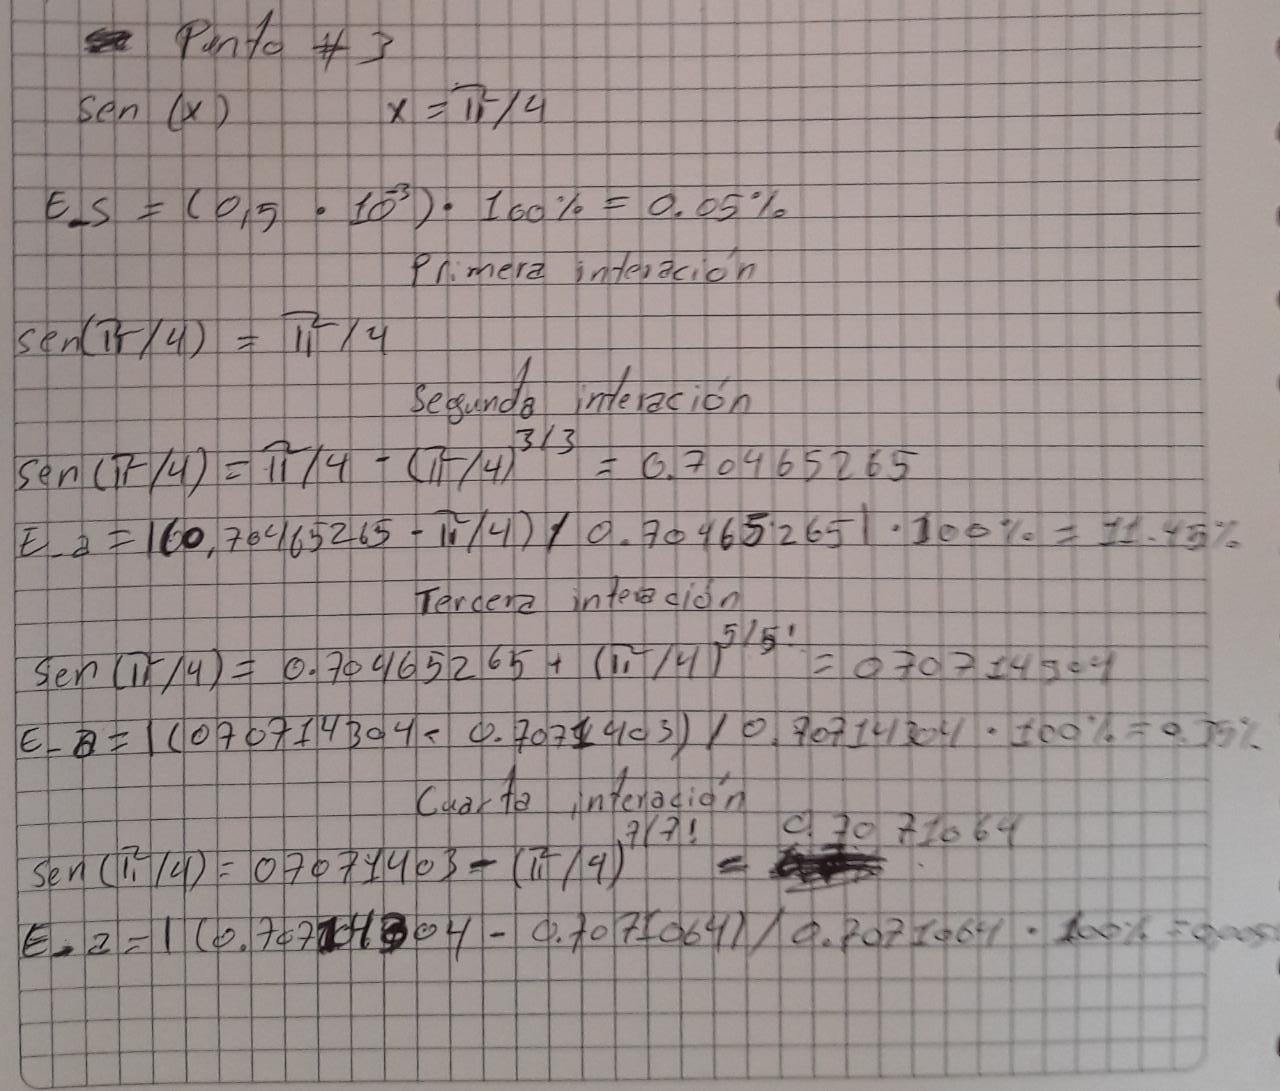 Punto # 3
Sen (x) x = π/4
E_s = (0,5 · 10⁻³) · 100% = 0.05%
Primera interación
sen(π/4) = π/4
Segunda interación
Sen(π/4) = π/4 - (π/4)^3/3 = 0.70465265
E_a = |(0,70465265 - π/4) / 0.70465265| · 100% = 11.45%
Tercera interación
Sen(π/4) = 0.70465265 + (π/4)^5/5! = 070714304
E_a = |(070714304 - 0.7071403) / 0.70714304 · 100% = 0.35%
Cuarta interación
Sen(π/4) = 07071403 - (π/4)^7/7! = 0.7071064
E_a = |(0.70714304 - 0.7071064) / 0.7071064 · 100% =